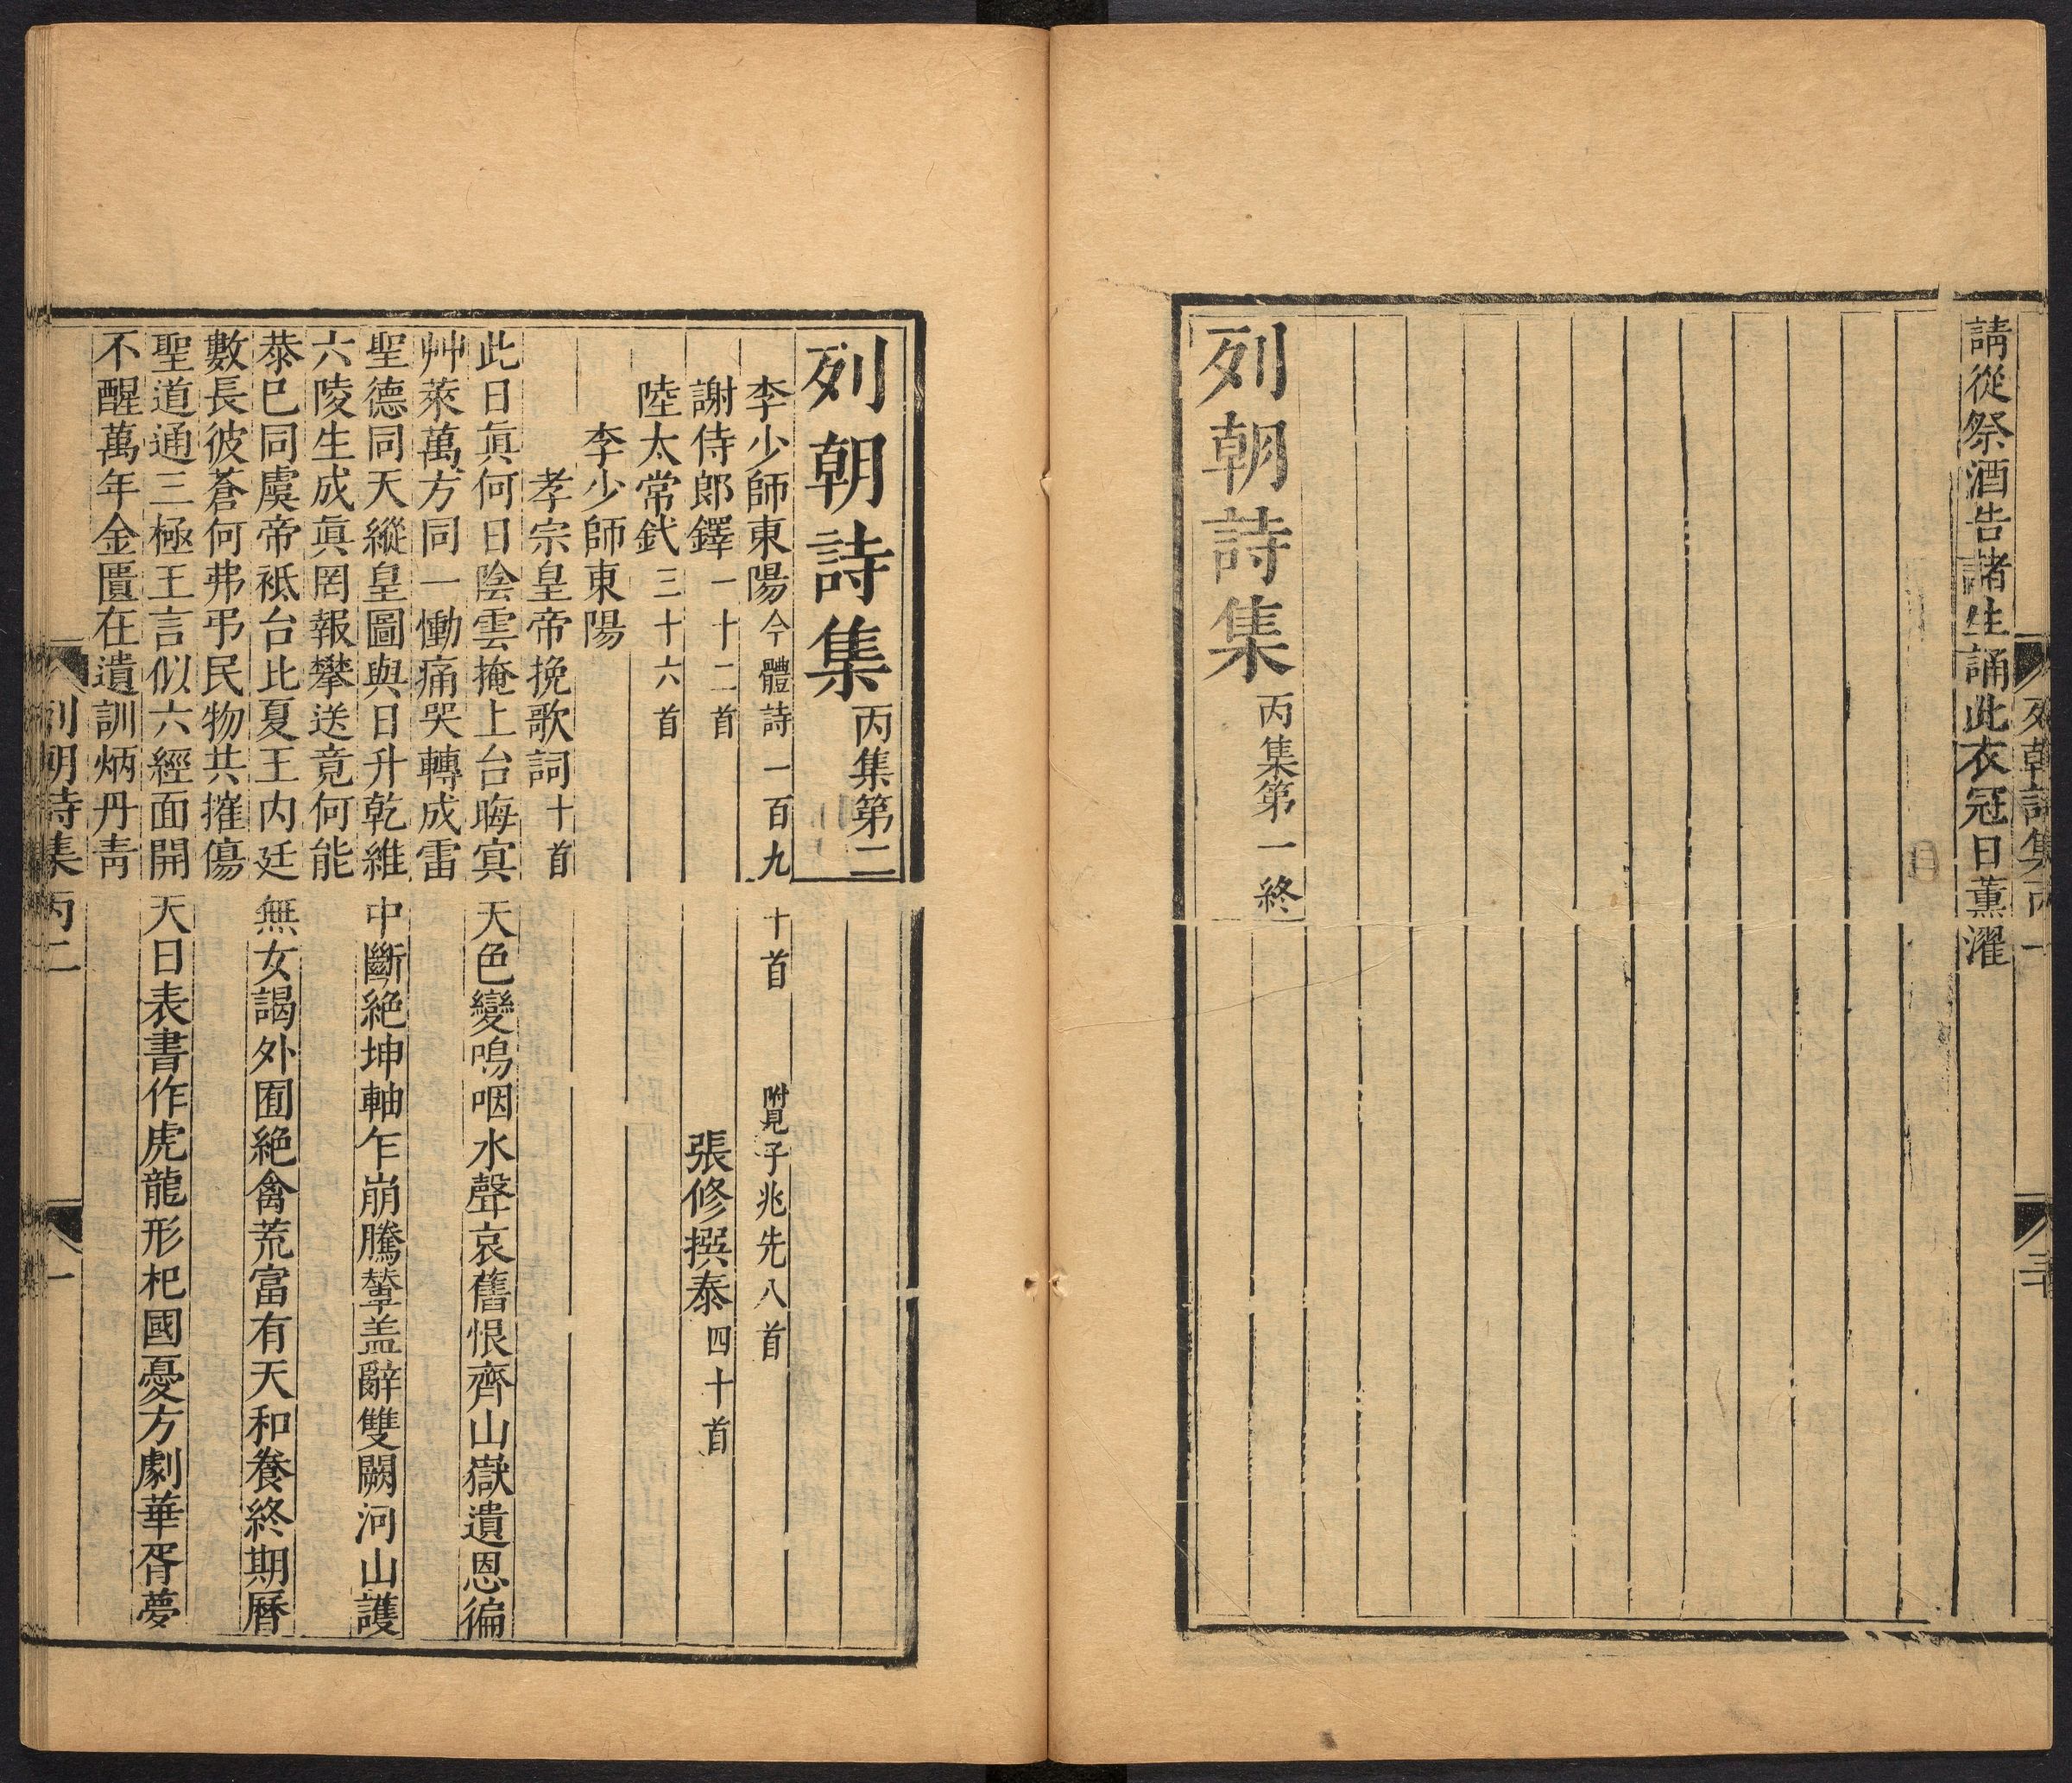 列朝詩集丙一
請從祭酒告諸生誦此衣冠日薰濯
列朝詩集 丙集第一終
列朝詩集 丙集第二
李少師東陽今體詩一百九十首 附見子兆先八首
謝侍郎鐸一十二首 張修撰泰四十首
陸太常釴三十六首
李少師東陽
孝宗皇帝挽歌詞十首
此日眞何日陰雲掩上台晦㝠天色變嗚咽水聲哀舊恨齊山嶽遺恩徧
艸萊萬方同一慟痛哭轉成雷
聖德同天縱皇圖與日升乾維中斷絶坤軸乍崩騰輦盖辭雙闕河山護
六陵生成眞罔報攀送竟何能
恭巳同虞帝祗台比夏王内廷無女謁外囿絶禽荒富有天和養終期曆
數長彼蒼何弗弔民物共摧傷
聖道通三極王言似六經面開天日表書作虎龍形杞國憂方劇華胥夢
不醒萬年金匱在遺訓炳丹靑
列朝詩集丙二 一